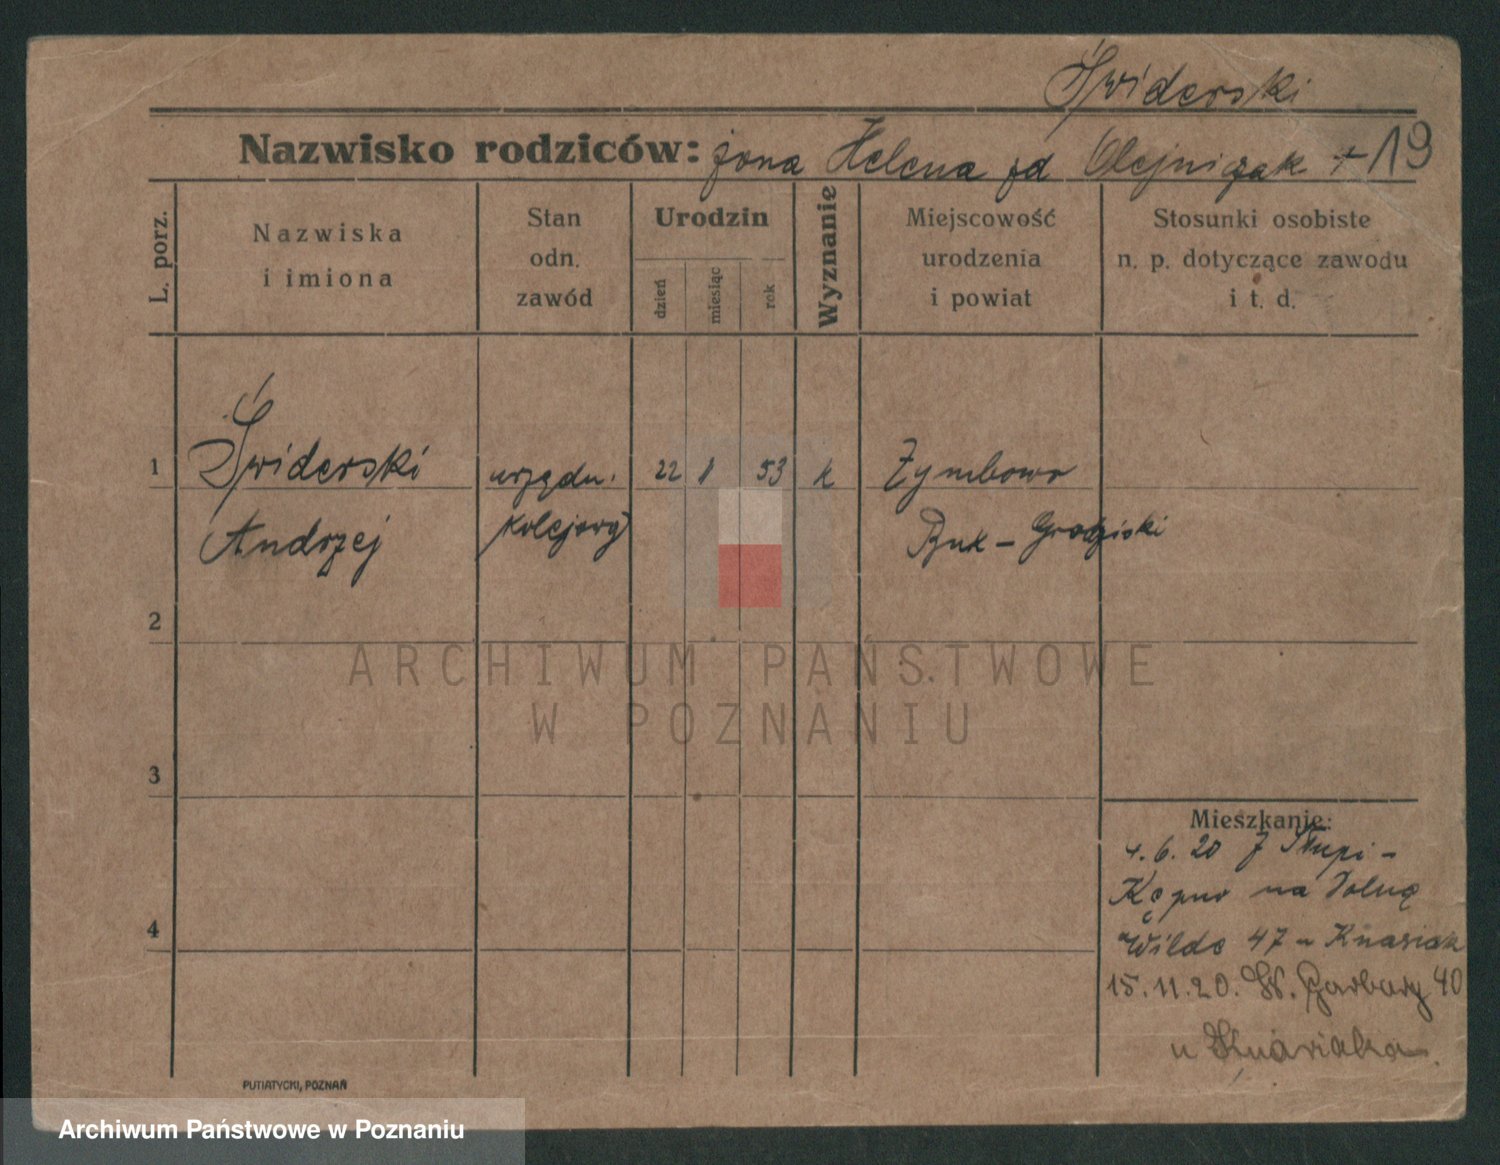 Świderski
Nazwisko rodziców: żona Helena zd Olejniczak + 19
L. porz.
Nazwiska
i imiona
Stan
odn.
zawód
Urodzin
dzień
miesiąc
rok
Wyznanie
Miejscowość
urodzenia
i powiat
Stosunki osobiste
n. p. dotyczące zawodu
i t. d.
1
Świderski
Andrzej
urzędn.
kolejowy
22
53
k
Zymbowo
Buk - Grodziski
2
3
4
Mieszkanie:
4.6.20 z Słupi -
Kępno na Dolną
Wildę 47 - Knasiak
15.11.20. W. Garbary 40
u Knasiaka.
PUTIATYCKI, POZNAŃ
ARCHIWUM PAŃSTWOWE
W POZNANIU
Archiwum Państwowe w Poznaniu